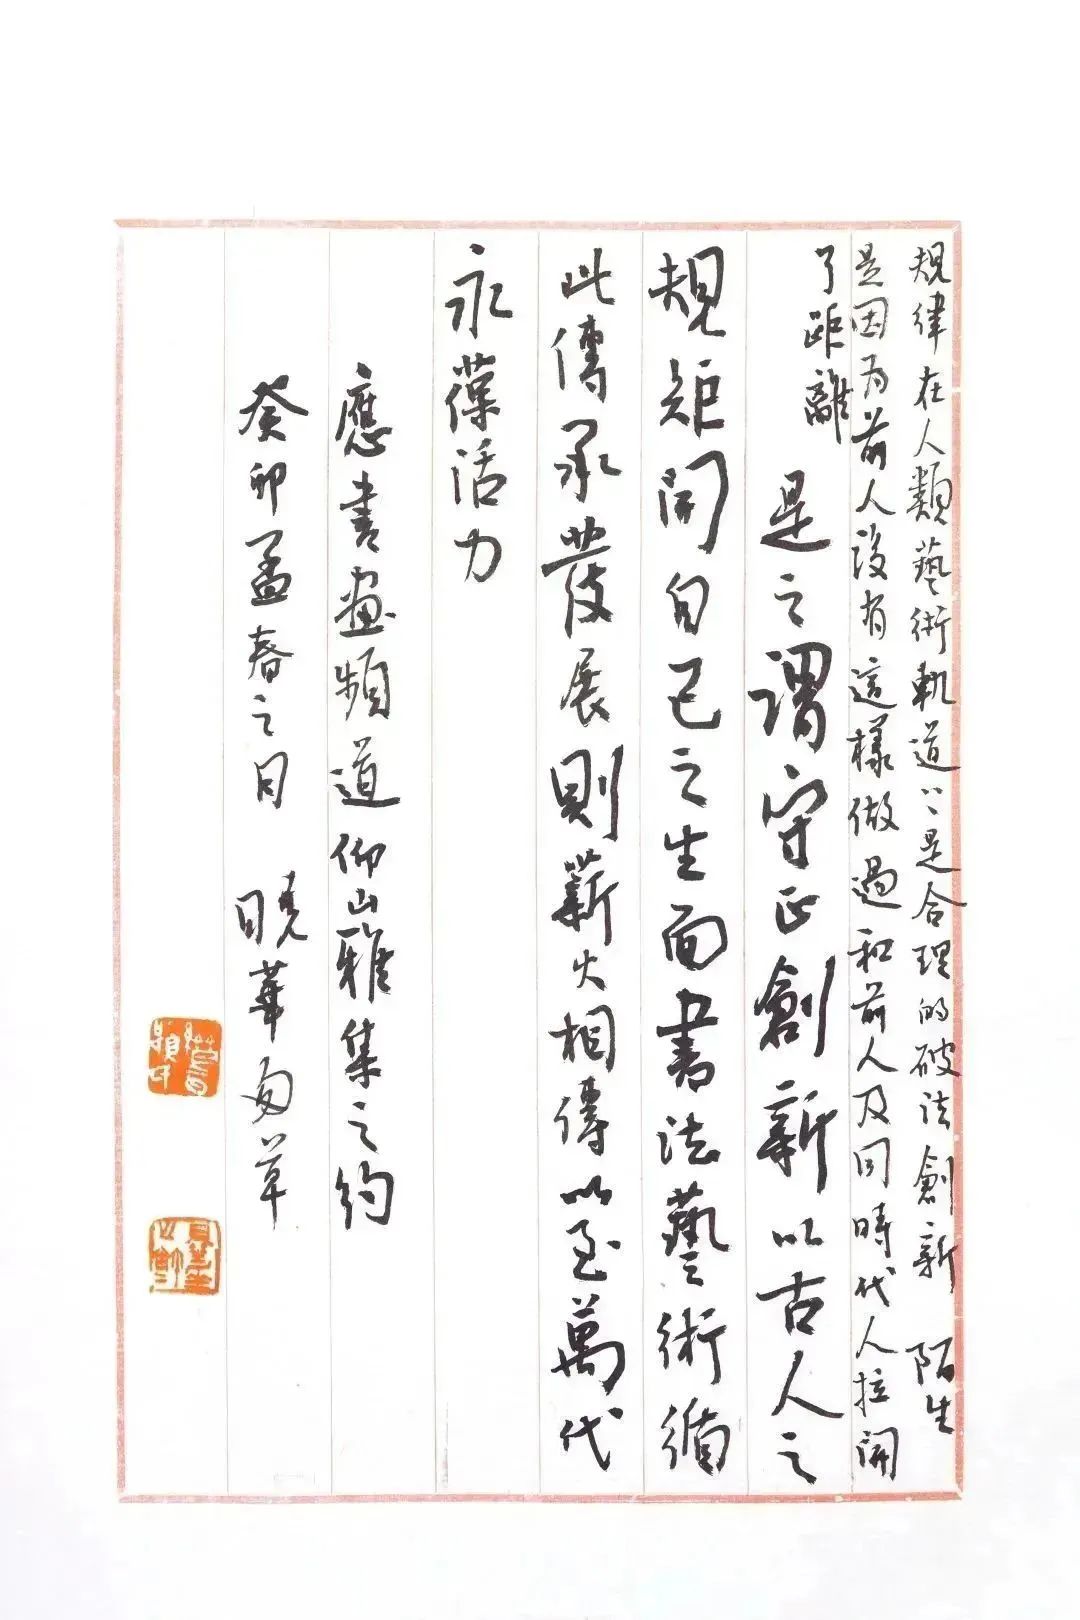 規律在人類藝術軌道是合理的破法創新 陌生
是因為前人沒有這樣做過和前人及同時代人拉開
了距離 是之謂守正創新以古人之
規矩開自己之生面書法藝術循
此傳承發展則薪火相傳以至萬代
永葆活力
應書畫頻道仰山雅集之約
癸卯孟春之日 曉華匆草